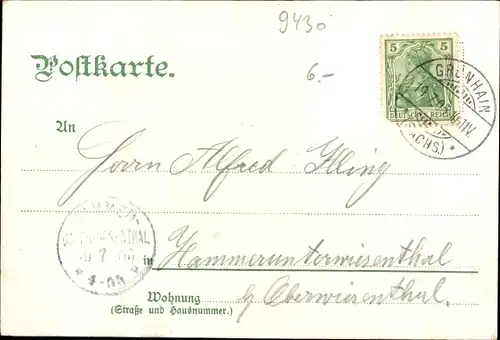 9430
6.-
Postkarte.
5 5
DEUTSCHES REICH
GRÜNHAIN
(SACHS.)
An
Herrn Alfred Illing
in Hammerunterwiesenthal
Wohnung
(Straße und Hausnummer.)
b/ Oberwiesenthal.